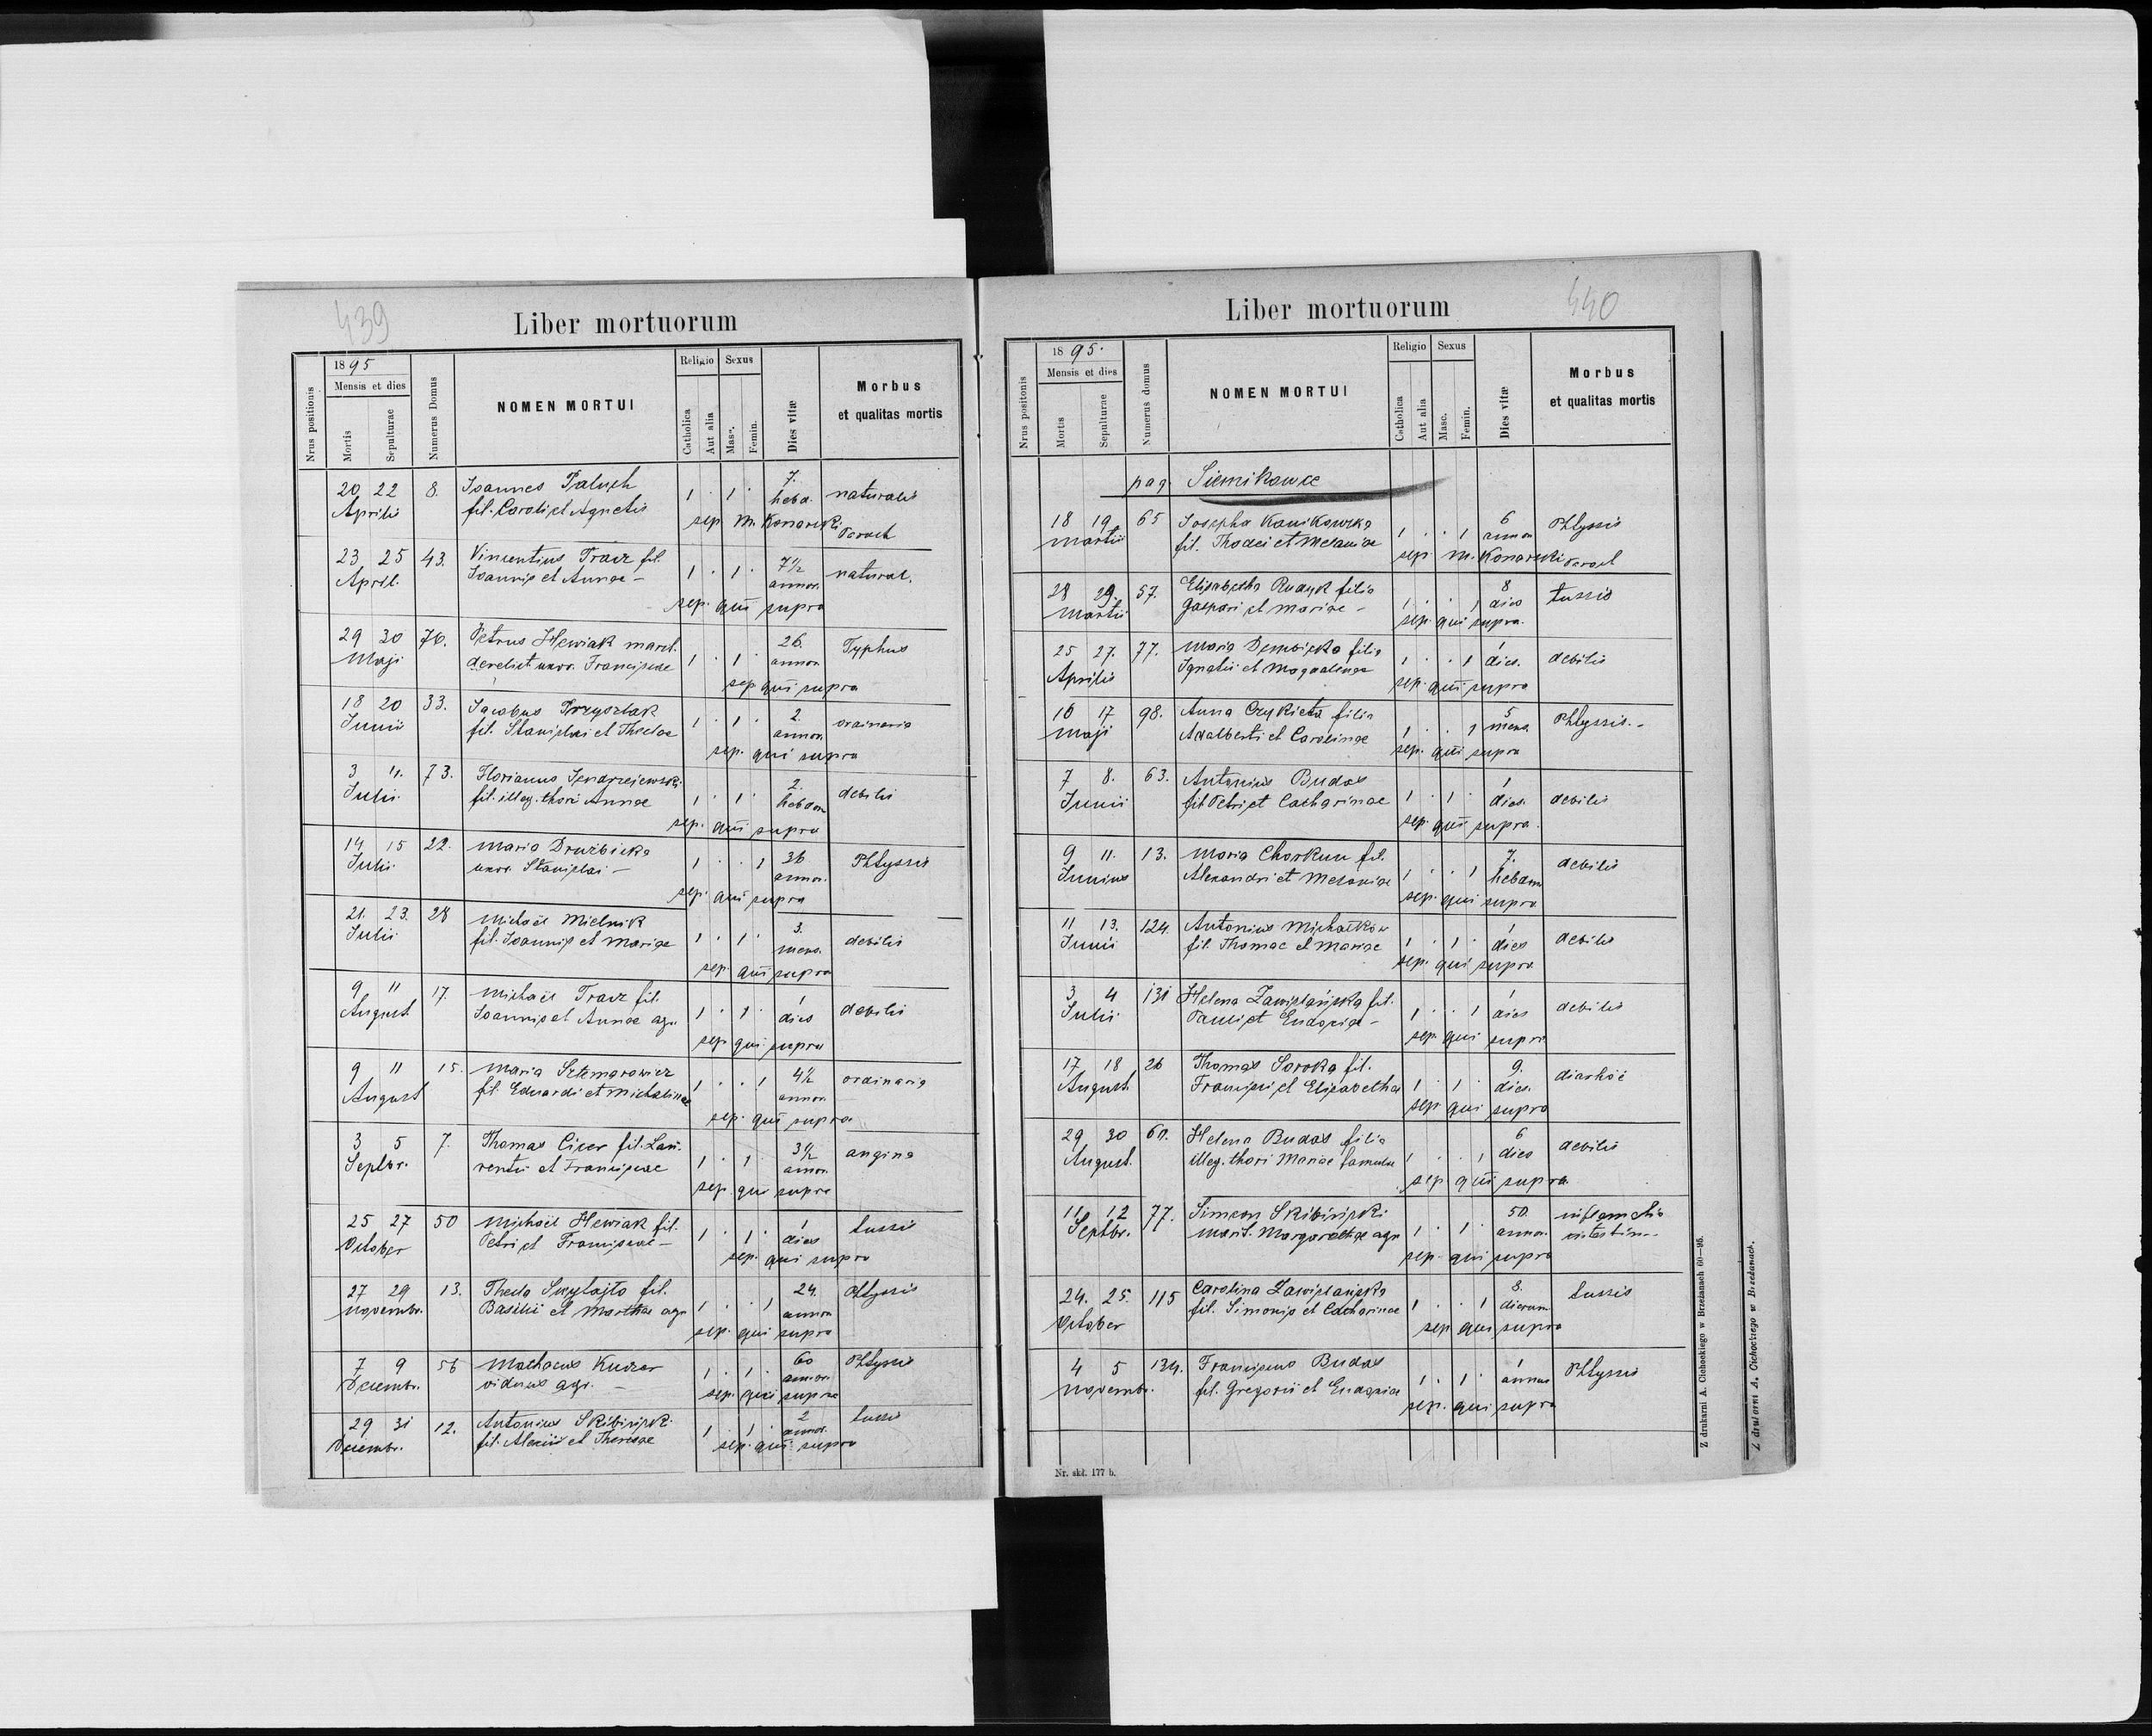 439
Liber mortuorum
Nrus positionis
1895
Mensis et dies
Mortis
Sepulturae
Numerus Domus
NOMEN MORTUI
Religio
Catholica
Aut alia
Sexus
Masc.
Femin.
Dies vitæ
Morbus
et qualitas mortis
20 22 8. Joannes Paluch 1 . 1 . 7. naturalis
Aprilis fil. Caroli et Agnetis heba.
sep. M. Konarski Paroch
23 25 43. Vincentius Tracz fil. 1 . 1 . 7½ natural.
April. Joannis et Annae – annor.
sep. qui supra
29 30 76. Petrus Hewiak marit. 1 . 1 . 26. Typhus
Maji derelict uxor. Franciscae annor.
sep. qui supra
18 20 33. Jacobus 1 . 1 . 2. ordinaria
Junii fil. Stanislai et Theclae annor.
sep. qui supra
3 11. 73. Florianus 1 . 1 . 2. debilis
Julii fil. illeg. thori Annae hebdom
sep. qui supra
14 15 22. Maria Drużbicka 1 . . 1 36 Phtyssis
Julii uxor. Stanislai – annor.
sep. qui supra
21. 23. 28 Michaël Mielnik 1 . 1 . 3. debilis
Julii fil. Joannis et Mariae mens.
sep. qui supra
9 11 17. Michaël Tracz fil. 1 . 1 . 1 debilis
August Joannis et Annae agr. dies
sep. qui supra
9 11 15. Maria 1 . . 1 4½ ordinaria
August fil. Eduardi et Michalinae annor.
sep. qui supra.
3 5 7. Thomas Cicer fil. Lau- 1 . 1 . 3½ angina
Septbr. rentii et Franciscae annor.
sep. qui supra
25 27 50 Michaël Hewiak fil. 1 . 1 . 1 tussis
October Petri et Franciscae – dies
sep. qui supra
27 29 13. Thecla fil. 1 . . 1 24. Phtyssis
Novembr. Basilii et Marthae agr. annor
sep. qui supra
7 9 56 Mathaeus 1 . 1 . 60 Phtyssis
Decembr. viduus agr. – annor.
sep. qui supra
29 31 12. Antonius Skibiński 1 . 1 . 2 tussis
Decembr. fil. Alexii et Theresae annor.
sep. qui supra
440
Liber mortuorum
Nrus positonis
1895.
Mensis et dies
Mortis
Sepulturae
Numerus domus
NOMEN MORTUI
Religio
Catholica
Aut alia
Sexus
Masc.
Femin.
Dies vitæ
Morbus
et qualitas mortis
pag. Siemikowce
18 19 65 Josepha 1 . . 1 6 Phtyssis
Martii fil. Thadei et Melaniae annor
sep. M. Konarski Paroch
28 29. 57. Elisabetha Rudyk filia 1 . . 1 8 tussis
Martii Gaspari et Mariae – dies
sep. qui supra.
25 27. 77. Maria Dembicka filia 1 . . 1 1 debilis
Aprilis Ignatii et Magdalenae dies.
sep. qui supra
16 17 98. Anna Czykieta filia 1 . . 1 5 Phtyssis. -
Maji Adalberti et Carolinae mens.
sep. qui supra
7 8. 63. Antonius Budas 1 . 1 . 1 debilis
Junii fil Petri et Catharinae dies.
sep. qui supra.
9 11. 13. Maria Charkun fil. 1 . . 1 7. debilis
Junius Alexandri et Melaniae hebdom
sep. qui supra
11 13. 124. Antonius Michałków 1 . 1 . 1 debilis
Junii fil. Thomae et Mariae dies
sep. qui supra.
3 4 131 Helena Zawiślańska fil. 1 . . 1 1 debilis
Julii Pauli et Eudoxiae – dies
sep. qui supra
17 18 26 Thomas Soroka fil. 1 . 1 . 9. diarhöe
August. Francisci et Elisabethae dies.
sep. qui supra
29 30 60. Helena Budas filia 1 . . 1 6 debilis
August. illeg. thori Mariae famula dies
sep. qui supra.
11 12 77. Simeon Skibiński 1 . 1 . 50. inflamatio
Septbr. marit. Margarethae agr annor.
sep. qui supra
24. 25. 115 Carolina Zawiślańska 1 . . 1 8. tussis
October fil. Simonis et Catharinae dierum
sep. qui supra
4 5 134. Franciscus Budas 1 . 1 . 1 Phtyssis
Novembr. fil. Gregorii et Eudoxiae annus
sep. qui supra
Nr. skł. 177 b.
Z drukarni A. Cichockiego w Brzeżanach 60—95.
Z drukarni A. Cichockiego w Brzeżanach.